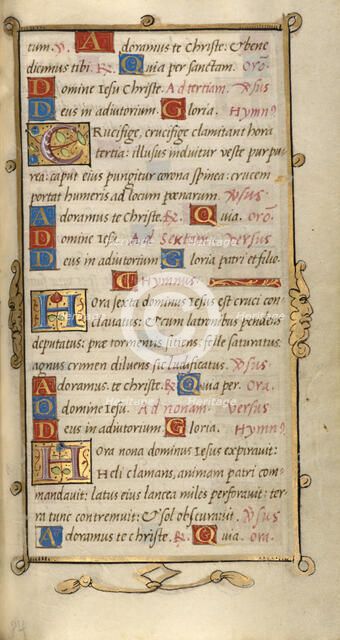 tum. V. Adoramus te Christe: & bene
dicimus tibi. R. Quia per sanctam. Orõ.
Domine Iesu Christe. Ad tertiam. Vsus
Deus in adiutorium. Gloria. Hymn9.
Crucifige, crucifige clamitant hora
tertia: illusus induitur veste purpu
rea: caput eius pungitur corona spinea: crucem
portat humeris ad locum pœnarum. Vsus
Adoramus te Christe. R. Quia. Orõ.
Domine Iesu. Ad Sextam. Versus
Deus in adiutorium. Gloria patri et filio.
Hymnus.
Hora sexta dominus Iesus est cruci con
clauatus: & cum latronibus pendens
deputatus: præ tormentis sitiens: felle saturatus.
agnus crimen diluens sic ludificatus. Vsus
Adoramus. te christe. R. Quia per. Ora.
Domine Iesu. Ad nonam. Versus
Deus in adiutorium. Gloria. Hymn9.
Hora nona dominus Iesus expirauit:
Heli clamans, animam patri com
mandauit: latus eius lancea miles perforauit: ter
ra tunc contremuit: & sol obscurauit. Vsus
Adoramus te christe. R. Quia. Ora.
Heritage
Images
24